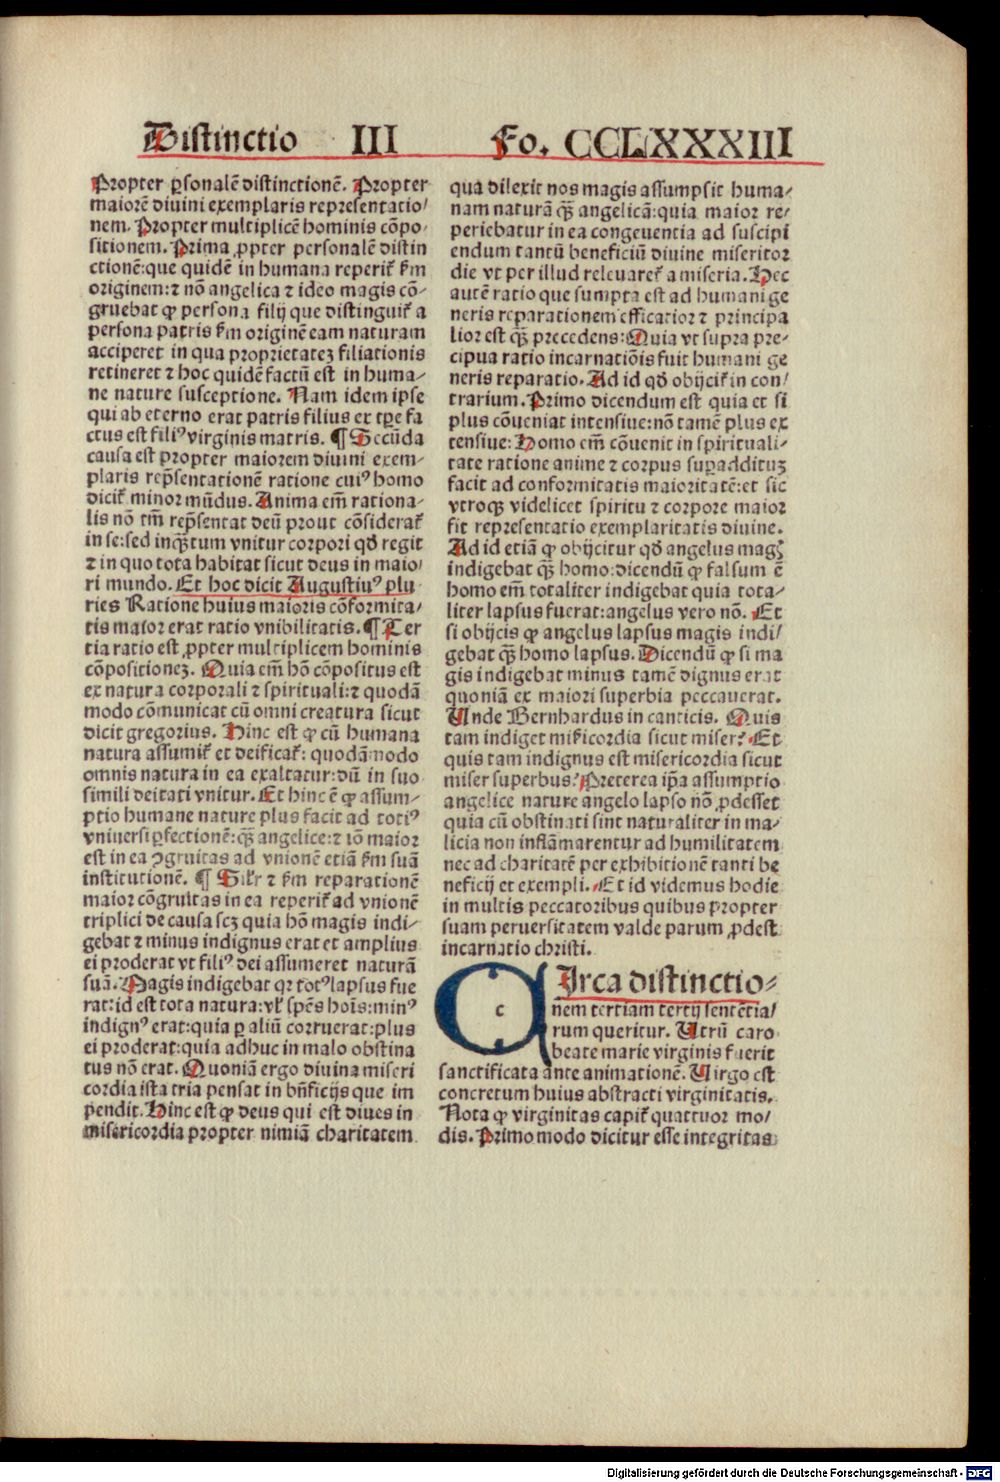 Distinctio III Fo. CCLXXXIII
Propter ꝑsonalē distinctionē. Propter
maiorē diuini exemplaris representatio/
nem. Propter multiplicē hominis cōpo/
sitionem. Prima ꝓpter personalē distin
ctionē:que quidē in humana reperit᷑ s̄m
originem:⁊ nō angelica ⁊ ideo magis cō/
gruebat ꝙ persona filij que distinguit᷑ a
persona patris s̄m originē eam naturam
acciperet in qua proprietateꝫ filiationis
retineret ⁊ hoc quidē factū est in huma/
ne nature susceptione. Nam idem ipse
qui ab eterno erat patris filius ex tꝑe fa
ctus est filiꝰ virginis matris. ¶ Secūda
causa est propter maiorem diuini exem/
plaris rep̄sentationē ratione cuiꝰ homo
dicit᷑ minor mūdus. Anima em̄ rationa/
lis nō tm̄ rep̄sentat deū prout cōsiderat᷑
in se:sed inqꝫtum vnitur corpori qd̄ regit
⁊ in quo tota habitat sicut deus in maio/
ri mundo. Et hoc dicit Augustiuꝰ plu
ries Ratione huius maioris cōformita/
tis maior erat ratio vnibilitatis. ¶ Ter
tia ratio est ꝓpter multiplicem hominis
cōpositioneꝫ. Quia em̄ hō cōpositus est
ex natura corporali ⁊ spirituali:⁊ quodā
modo cōmunicat cū omni creatura sicut
dicit gregorius. Hinc est ꝙ cū humana
natura assumit᷑ et deificat᷑: quodāmodo
omnis natura in ea exaltatur:dū in suo
simili deitati vnitur. Et hinc ē ꝙ assum/
ptio humane nature plus facit ad totiꝰ
vniuersi ꝑfectionē:qꝫ angelice:⁊ iō maior
est in ea ꝯgruitas ad vnionē etiā s̄m suā
institutionē. ¶ Silr ⁊ s̄m reparationē
maior cōgruitas in ea reperit᷑ ad vnionē
triplici de causa scꝫ quia hō magis indi/
gebat ⁊ minus indignus erat et amplius
ei proderat vt filiꝰ dei assumeret naturā
suā. Magis indigebat qꝛ totꝰ lapsus fue
rat:id est tota natura:vl᷑ spēs hoīs:minꝰ
indignꝰ erat:quia ꝑ aliū corruerat:plus
ei proderat:quia adhuc in malo obstina
tus nō erat. Quoniā ergo diuina miseri
cordia ista tria pensat in bn̄ficijs que im
pendit. Hinc est ꝙ deus qui est diues in
misericordia propter nimiā charitatem
qua dilexit nos magis assumpsit huma/
nam naturā qꝫ angelicā:quia maior re/
periebatur in ea congeuentia ad suscipi
endum tantū beneficiū diuine misericor
die vt per illud releuaret᷑ a miseria. Hec
autē ratio que sumpta est ad humani ge
neris reparationem efficatior ⁊ principa
lior est qꝫ precedens:Quia vt supra pre/
cipua ratio incarnatiōis fuit humani ge
neris reparatio. Ad id qd̄ obijcit᷑ in con/
trarium. Primo dicendum est quia et si
plus cōueniat intensiue:nō tamē plus ex
tensiue:Homo em̄ cōuenit in spirituali/
tate ratione anime ⁊ corpus suꝑaddituꝫ
facit ad conformitatis maioritatē:et sic
vtroqꝫ videlicet spiritu ⁊ corpore maior
fit representatio exemplaritatis diuine.
Ad id etiā ꝙ obijcitur qd̄ angelus magꝭ
indigebat qꝫ homo:dicendū ꝙ falsum ē
homo em̄ totaliter indigebat quia tota/
liter lapsus fuerat:angelus vero nō. Et
si obijcis ꝙ angelus lapsus magis indi/
gebat qꝫ homo lapsus. Dicendū ꝙ si ma
gis indigebat minus tamē dignus erat
quoniā ex maiori superbia peccauerat.
Unde Bernhardus in canticis. Quis
tam indiget mīcordia sicut miser? Et
quis tam indignus est misericordia sicut
miser superbus? Preterea ip̄a assumptio
angelice nature angelo lapso nō ꝓdesset
quia cū obstinati sint naturaliter in ma/
licia non inflāmarentur ad humilitatem
nec ad charitatē per exhibitionē tanti be
neficij et exempli. Et id videmus hodie
in multis peccatoribus quibus propter
suam peruersitatem valde parum ꝓdest
incarnatio christi.
C c Irca distinctio/
nem tertiam tertij sentētia/
rum queritur. Utrū caro
beate marie virginis fuerit
sanctificata ante animationē. Virgo est
concretum huius abstracti virginitatis.
Nota ꝙ virginitas capit᷑ quattuor mo/
dis. Primo modo dicitur esse integritas
Digitalisierung gefördert durch die Deutsche Forschungsgemeinschaft - DFG